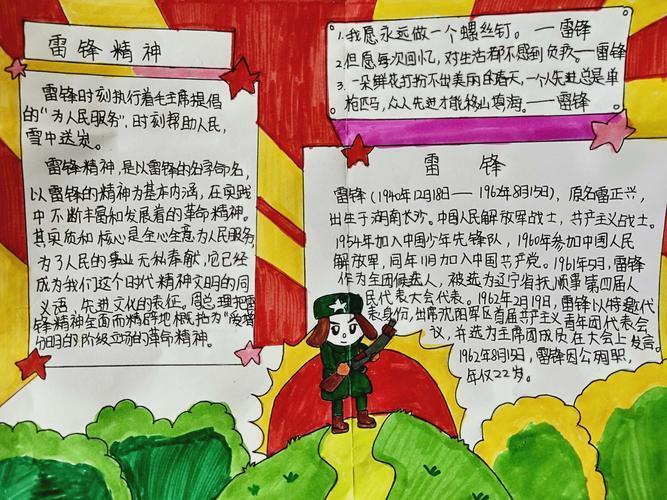 雷锋精神
雷锋时刻执行着毛主席提倡
的“为人民服务”，时刻帮助人民，
雪中送炭。
雷锋精神，是以雷锋的名字命名，
以雷锋的精神为基本内涵，在实践
中不断丰富和发展着的革命精神。
其实质和核心是全心全意为人民服务，
为了人民的事业无私奉献，它已经
成为我们这个时代精神文明的同
义语、先进文化的表征。周总理把雷
锋精神全面而精辟地概括为“爱憎
分明的阶级立场的革命精神。
1.我愿永远做一个螺丝钉。——雷锋
2.但愿每次回忆，对生活都不感到负疚。——雷锋
3.一朵鲜花打扮不出美丽的春天，一个人先进总是单
枪匹马，众人先进才能移山填海。——雷锋
雷锋
雷锋（1940年12月18日——1962年8月15日），原名雷正兴，
出生于湖南长沙。中国人民解放军战士，共产主义战士。
1954年加入中国少年先锋队，1960年参加中国人民
解放军，同年11月加入中国共产党。1961年5月，雷锋
作为全团候选人，被选为辽宁省抚顺市第四届人
民代表大会代表。1962年2月19日，雷锋以特邀代
表身份，出席沈阳军区首届共产主义青年团代表会
议，并选为主席团成员在大会上发言。
1962年8月15日，雷锋因公殉职，
年仅22岁。